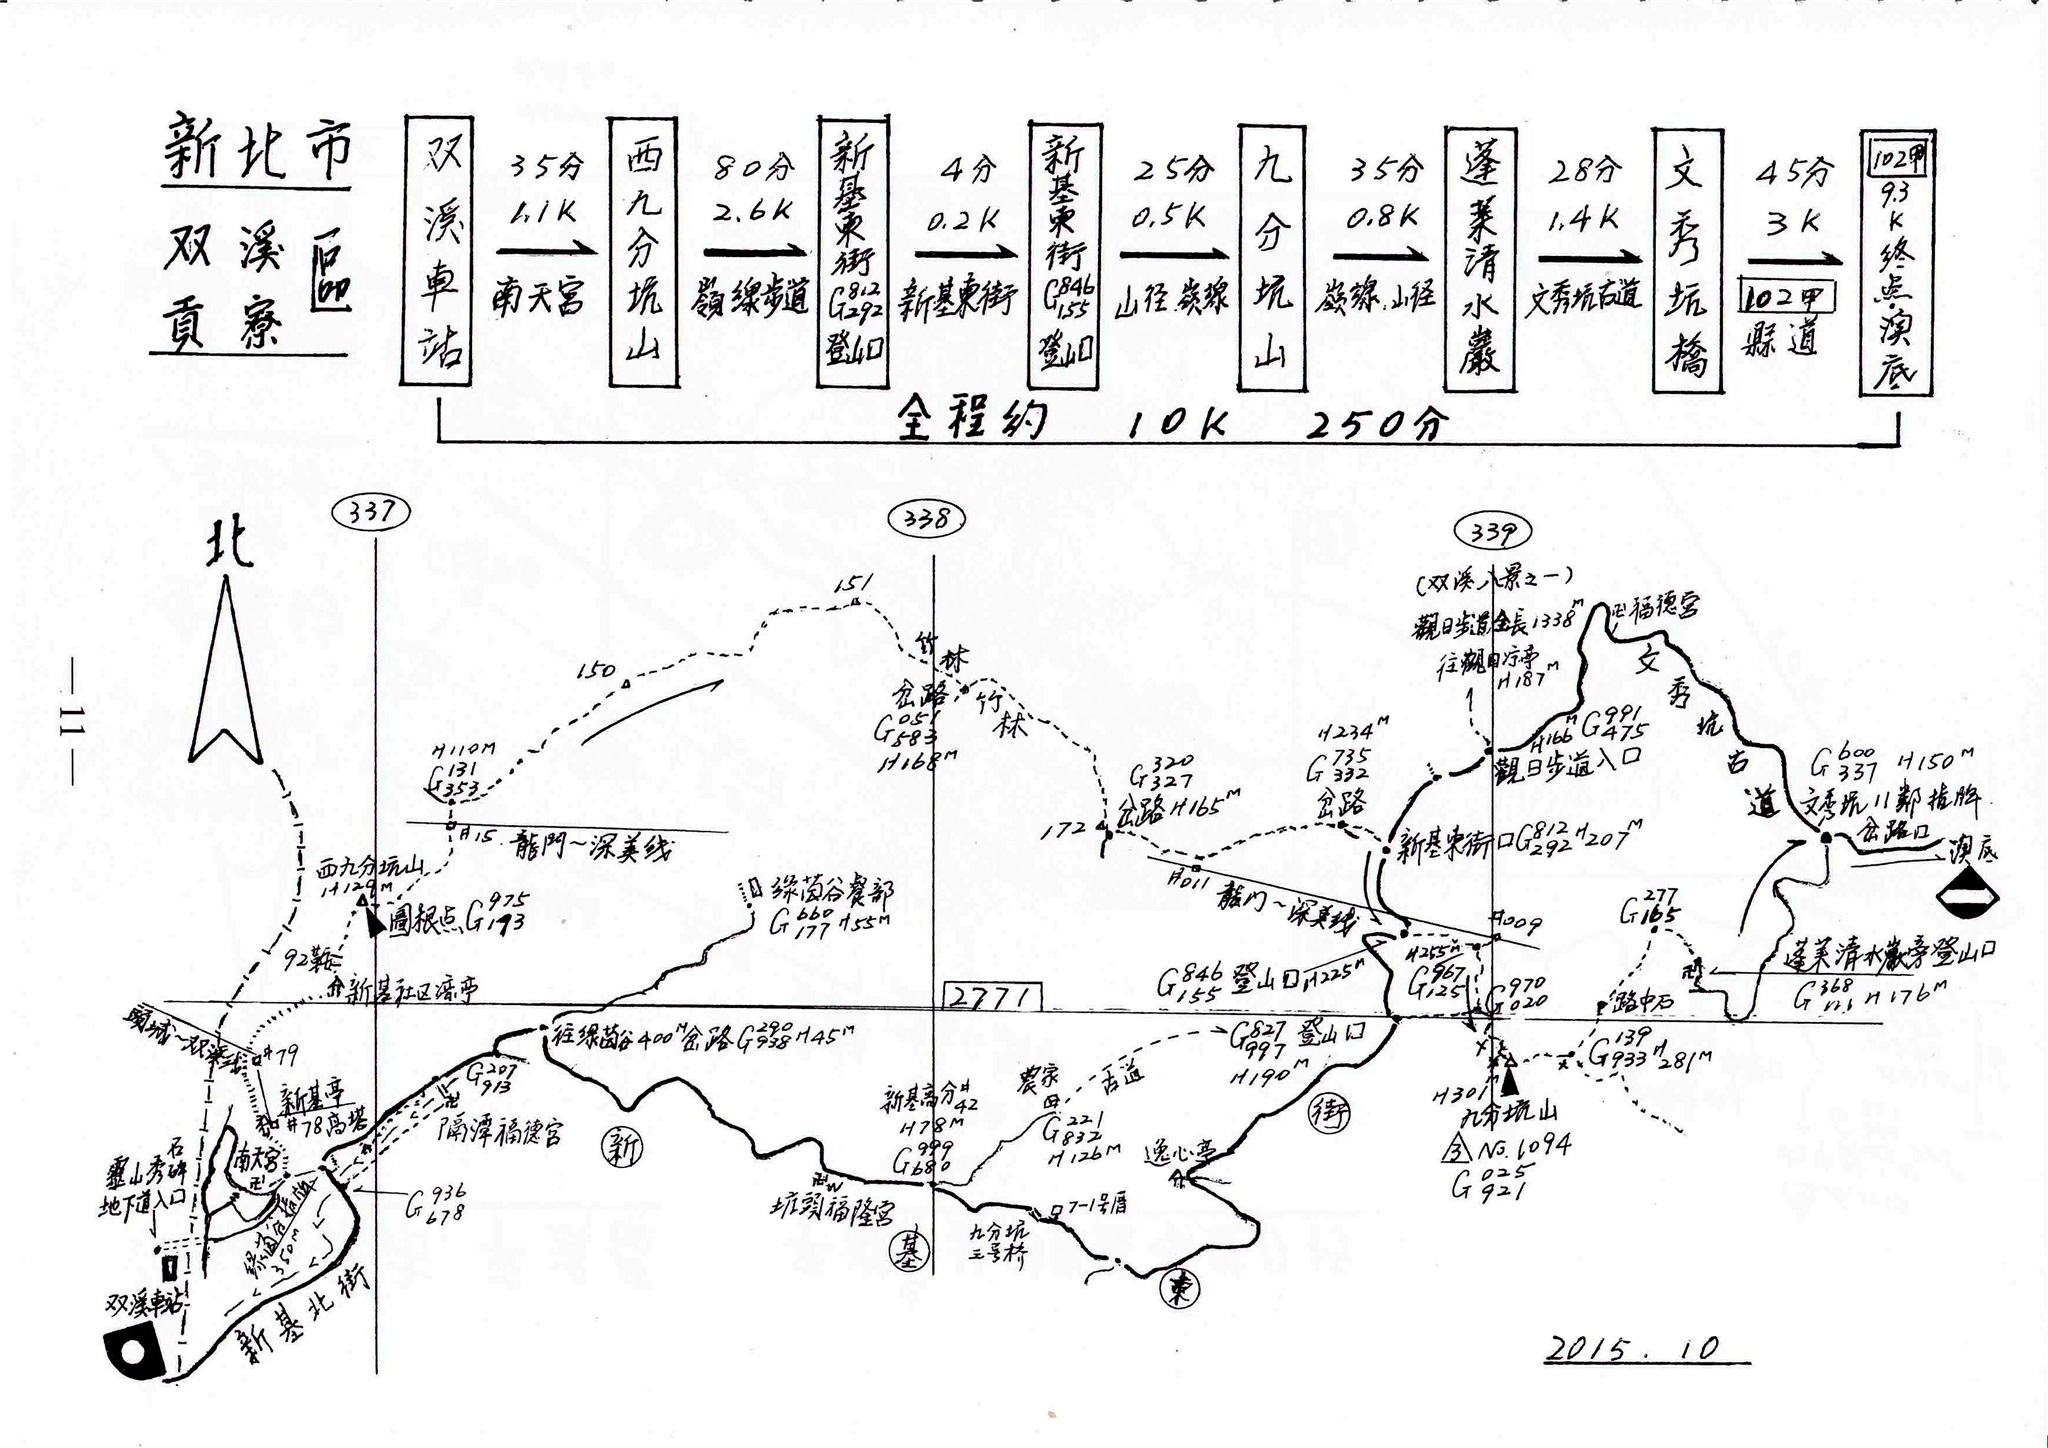 新北市
双溪
貢寮
區
双溪車站
35分
1.1K
南天宮
西九分坑山
80分
2.6K
嶺線步道
新基東街G812 292登山口
4分
0.2K
新基東街
新基東街G846 155登山口
25分
0.5K
山径.嶺線
九分坑山
35分
0.8K
嶺線.山径
蓬萊清水巖
28分
1.4K
文秀坑古道
文秀坑橋
45分
3K
102甲
縣道
102甲
9.3K終点.澳底
全程約 10K 250分
337
338
339
北
—11—
151
150
竹林
竹林
岔路
G051 583
H168M
H110M
G131 353
#15
龍門~深美线
西九分坑山
H129M
圖根点G975 193
92鞍
新基社区涼亭
#79
新基亭
#78高塔
南天宮
石碑
靈山秀
地下道入口
双溪車站
新基北街
350M
G936 678
隔潭福德宮
G207 913
往綠茵谷400M岔路G290 938 H45M
綠茵谷餐部
G660 177 H55M
2771
新
基
東
街
坑頭福隆宮
新基高分#42
H78M
G999 680
農家
G221 832
H126M
古道
九分坑三号桥
7-1号厝
逸心亭
G827 997
登山口
H190M
G320 327
岔路H165M
172
#011
龍门~深美线
H234M
G735 332
岔路
新基東街口G812 292 H207M
G846 155 登山口 H225M
H255M
G967 125
#009
G970 020
H301M
九分坑山
3 No.1094
G025 921
G139 933 H281M
路中石
G277 165
蓬萊清水巖旁登山口
H176M
(双溪八景之一)
觀日步道全長1338M
往觀日涼亭
H187M
H166M G991 475
觀日步道入口
福德宮
文秀坑古道
G600 337 H150M
文秀坑11鄰指牌
岔路口
澳底
2015.10